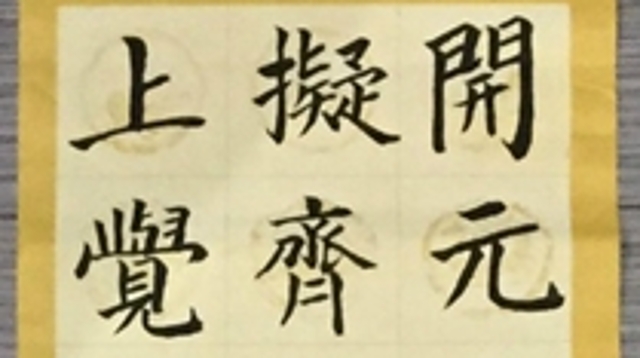 開元
擬齊
上覺